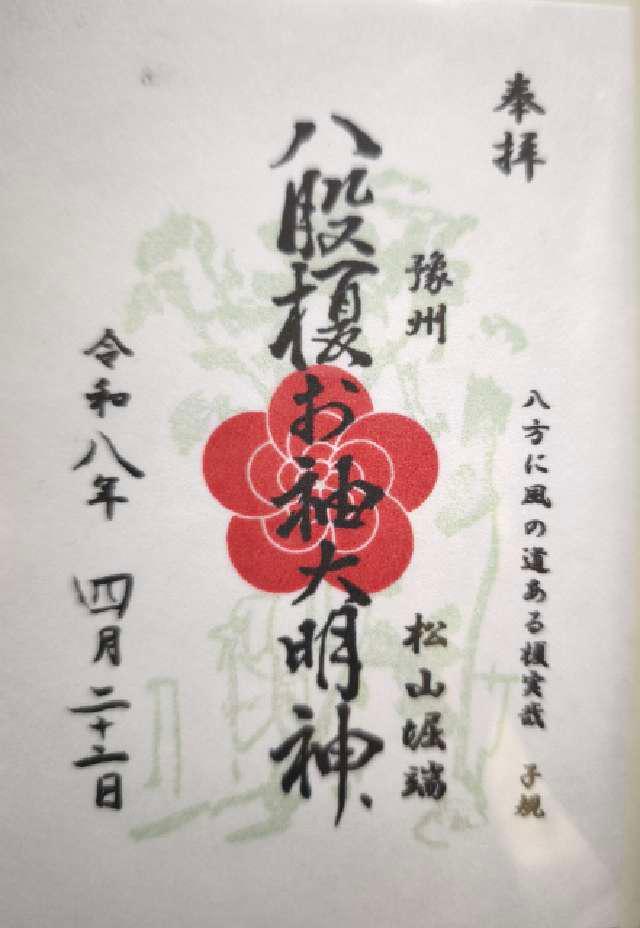 奉拝
八方に風の道ある榎実哉 子規
豫州 松山堀端
八股榎お袖大明神
令和八年 四月二十二日